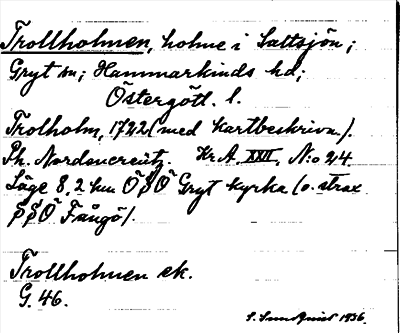 Trollholmen, holme i Saltsjön;
Gryt sn; Hammarkinds hd;
Östergötl. l.
Trolholm, 1722 (med kartbeskrivn.).
Ph. Nordencreütz. Kr A. XXII, N:o 24
Läge 8,2 km ÖSÖ Gryt kyrka (o. strax
SSÖ Fångö).
Trollholmen ek.
G. 46.
S. Sundqvist 1936.